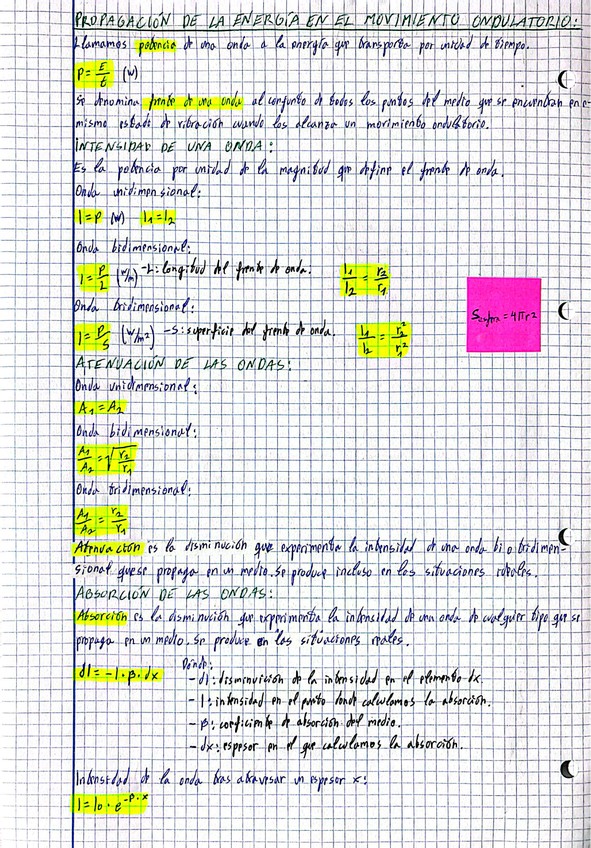 PROPAGACIÓN DE LA ENERGÍA EN EL MOVIMIENTO ONDULATORIO:
Llamamos potencia de una onda a la energía que transporta por unidad de tiempo.
P = E/t (W)
Se denomina frente de una onda al conjunto de todos los puntos del medio que se encuentran en e
mismo estado de vibración cuando los alcanza un movimiento ondulatorio.
INTENSIDAD DE UNA ONDA:
Es la potencia por unidad de la magnitud que define el frente de onda.
Onda unidimensional:
I = P (W) I₁ = I₂
Onda bidimensional:
I = P/L (W/m) - L: longitud del frente de onda. I₁/I₂ = r₂/r₁
Onda tridimensional:
I = P/S (W/m²) - S: superficie del frente de onda. I₁/I₂ = r₂²/r₁²
S esfera = 4πr²
ATENUACIÓN DE LAS ONDAS:
Onda unidimensional:
A₁ = A₂
Onda bidimensional:
A₁/A₂ = √(r₂/r₁)
Onda tridimensional:
A₁/A₂ = r₂/r₁
Atenuación es la disminución que experimenta la intensidad de una onda bi o tridimen-
sional que se propaga en un medio. Se produce incluso en las situaciones ideales.
ABSORCIÓN DE LAS ONDAS:
Absorción es la disminución que experimenta la intensidad de una onda de cualquier tipo que se
propaga en un medio. Se produce en las situaciones reales.
dI = -I · β · dx Donde:
- dI: disminuición de la intensidad en el elemento dx.
- I: intensidad en el punto donde calculamos la absorción.
- β: coeficiente de absorción del medio.
- dx: espesor en el que calculamos la absorción.
Intensidad de la onda tras atravesar un espesor x:
I = I₀ · e^-β·x